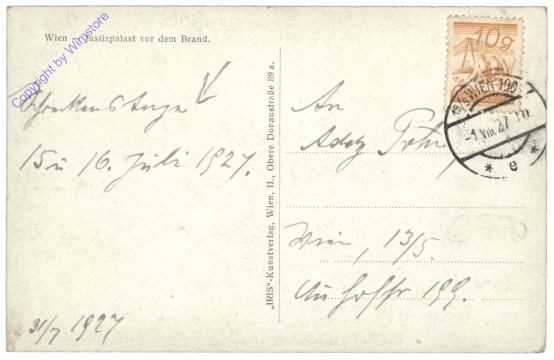 Wien — Justizpalast vor dem Brand.
Copyright by Wimstore
Schreckenstage
15 u 16. Juli 1927.
31/7 1927
„IRIS“-Kunstverlag, Wien, II., Obere Donaustraße 89 a.
10g
WIEN
-1.VIII.27
* e *
An
Adolf
Wien, 13/5.
199.